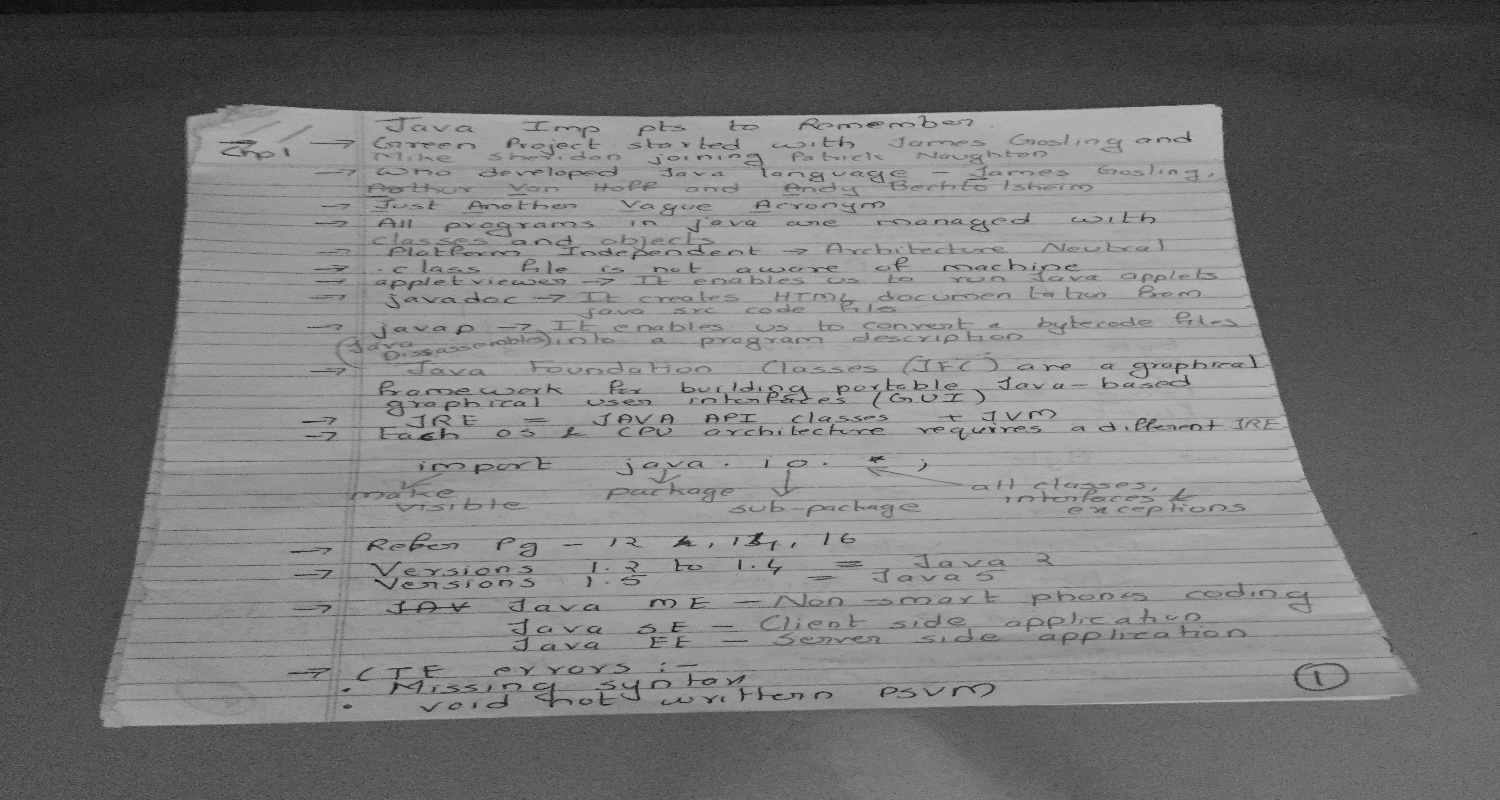 Java Imp pts to Remember
Chp 1 → Green Project started with James Gosling and
Mike Sheridan joining Patrick Naughton
→ Who developed Java language - James Gosling,
Arthur Van Hoff and Andy Bechtolsheim
→ Just Another Vague Acronym
→ All programs in java are managed with
classes and objects
→ Platform Independent → Architecture Neutral
→ .class file is not aware of machine
→ appletviewer → It enables us to run Java applets
→ javadoc → It creates HTML documentation from
java src code files
→ javap → It enables us to convert a bytecode files
(Java Dissassembles) into a program description
→ Java Foundation Classes (JFC) are a graphical
framework for building portable Java-based
graphical user interfaces (GUI)
→ JRE = JAVA API classes + JVM
→ Each OS & CPU architecture requires a different JRE
import java . io . * ;
make visible package sub-package all classes, interfaces & exceptions
→ Refer Pg - 12 , 16
→ Versions 1.2 to 1.4 = Java 2
Versions 1.5 = Java 5
→ JAV Java ME - Non-smart phones coding
Java SE - Client side application
Java EE - Server side application
→ CTE errors :-
• Missing syntax
• void not written PSVM
1